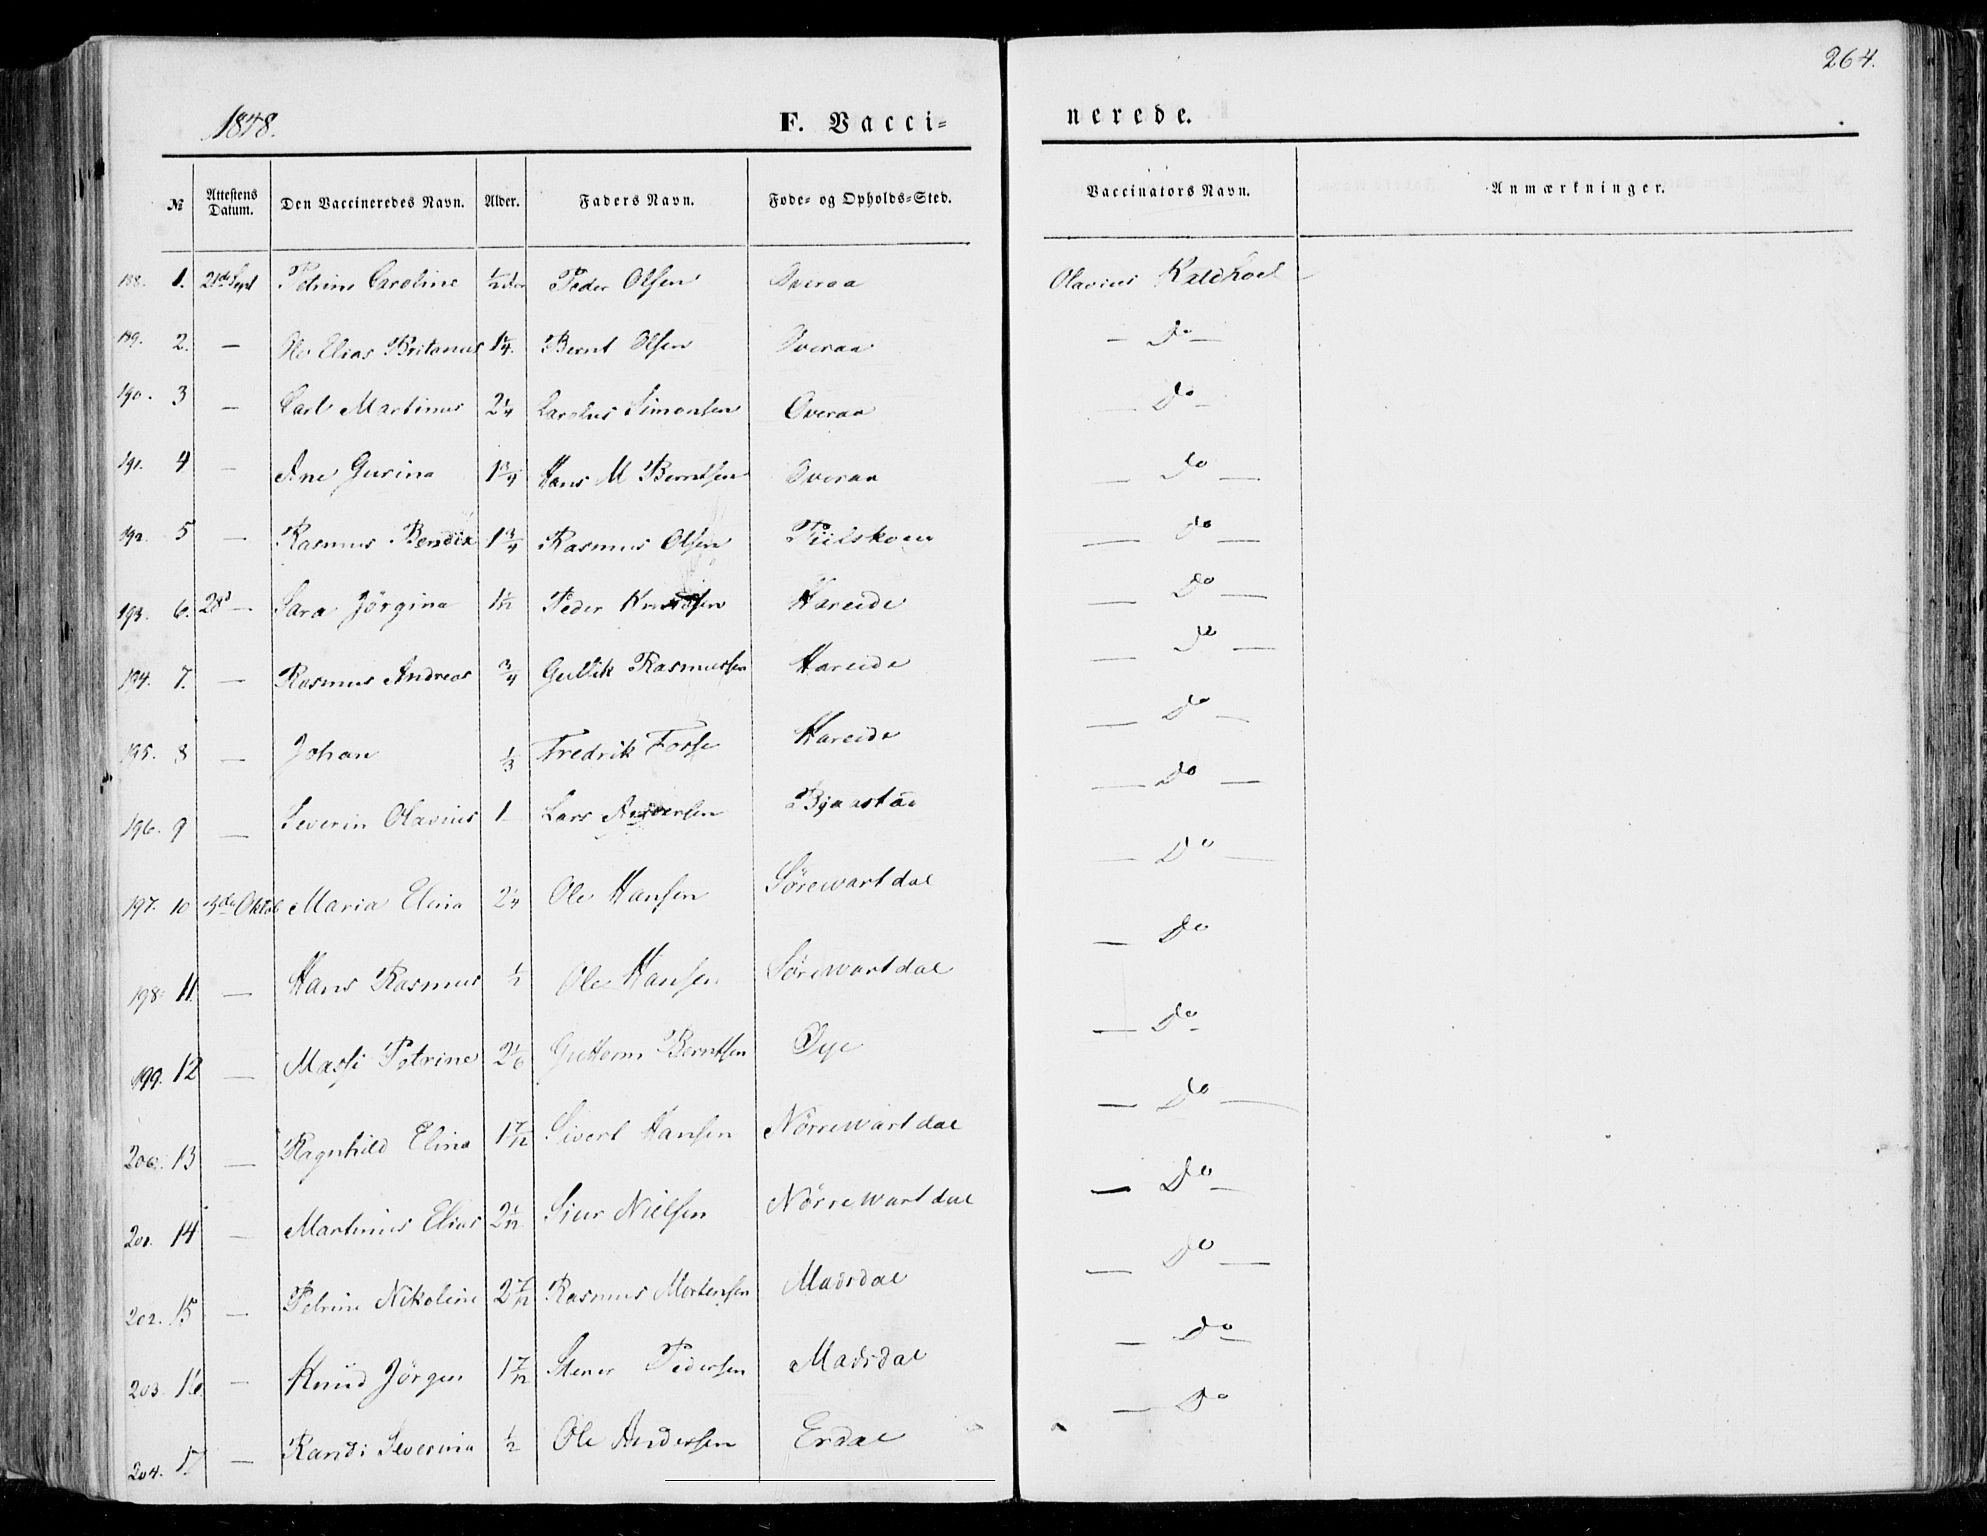 264.
1848.
F. Vacci- nerede.
№ Attestens Datum. Den Vaccineredes Navn. Alder. Faders Navn. Føde- og Opholds-Sted. Vaccinators Navn. Anmærkninger.
188. 1. 21de Sept Petrine Caroline Peder Olsen Overaa Olavius Kaldhoel
189. 2. — Ole Elias Britanus 1 1/4. Bernt Olsen Overaa — Do —
190. 3 — Carl Martinus 2 1/4 Carolus Simonsen Overaa — Do —
191. 4 — Ane Gurina 1 3/4 Hans M Berntsen Overaa — Do —
192. 5 — Rasmus Bendix 1 3/4 Rasmus Olsen — Do —
193. 6. 28d — Sara Jörgina 1 1/12 Peder Knudsen Hareide — Do —
194. 7. — Rasmus Andreas 3/4 Gullik Rasmussen Hareide — Do —
195. 8 — Johan 1/3 Fredrik Fosse Hareide — Do —
196. 9 — Severin Olavius 1 Lars Andersen Bjaastad — Do —
197. 10 3de Oktob Maria Elina 2 1/4 Ole Hansen Sørewartdal — Do —
198. 11. — Hans Rasmus 1/2 Ole Hansen Sørewartdal — Do
199. 12 — Massi Petrine 2 1/6 Guttorm Berntsen Øye — Do —
200. 13 — Ragnhild Elina 1 7/12 Sivert Hansen Nørrewartdal — Do —
201. 14 — Martinus Elias 2 1/12 Siur Nielsen Nørrewartdal — Do —
202. 15 — Petrine Nikoline 2 7/12 Rasmus Mortensen Madsdal — Do —
203. 16. — Knud Jörgen 1 7/12 Stener Pedersen Madsdal — Do —
204. 17. — Randi Severina 1/2 Ole Andersen Erdal — Do